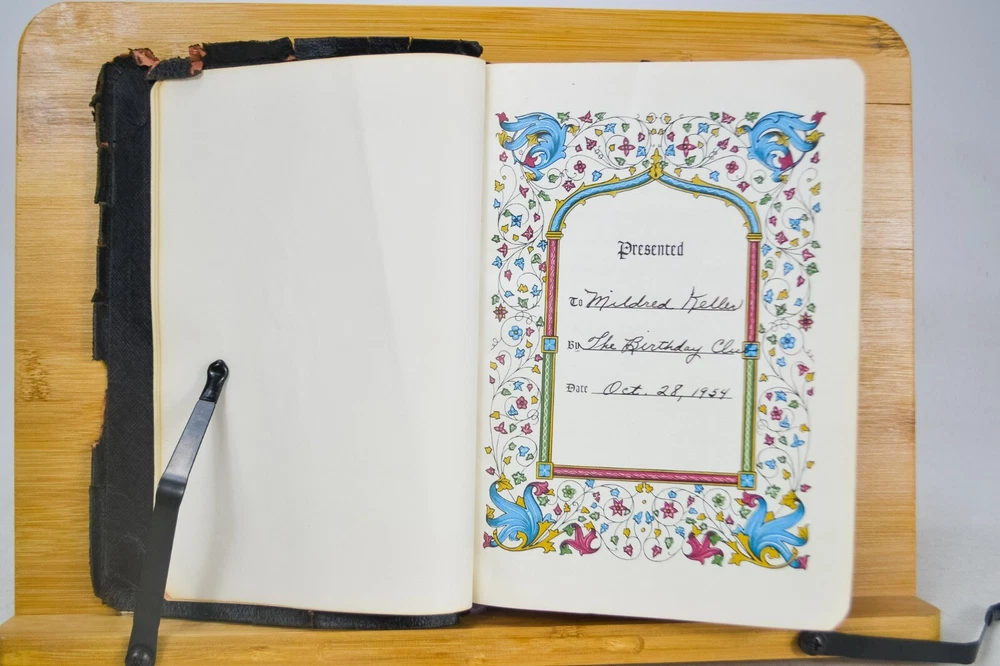 Presented
To Mildred Keller
By The Birthday Club
Date Oct. 28, 1954